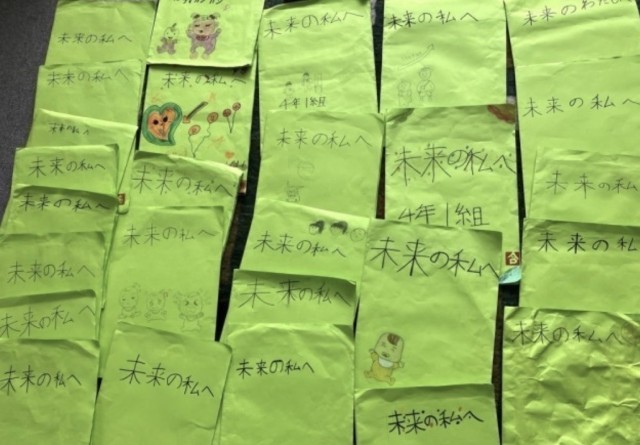 未来の私へ
未来の私へ
未来の私へ
未来の私へ
未来の私へ
未来の私へ
未来の私へ
未来の私へ
未来の私へ
未来の私へ
未来の私へ
未来の私へ
未来の私へ
4年1組
未来の私へ
未来の私へ
未来の私へ
未来の私へ
未来の私へ
未来の私へ
4年1組
未来の私へ
合
未来の私へ
未来のわたし
未来の私へ
未来の私へ
未来の私
未来の私へ